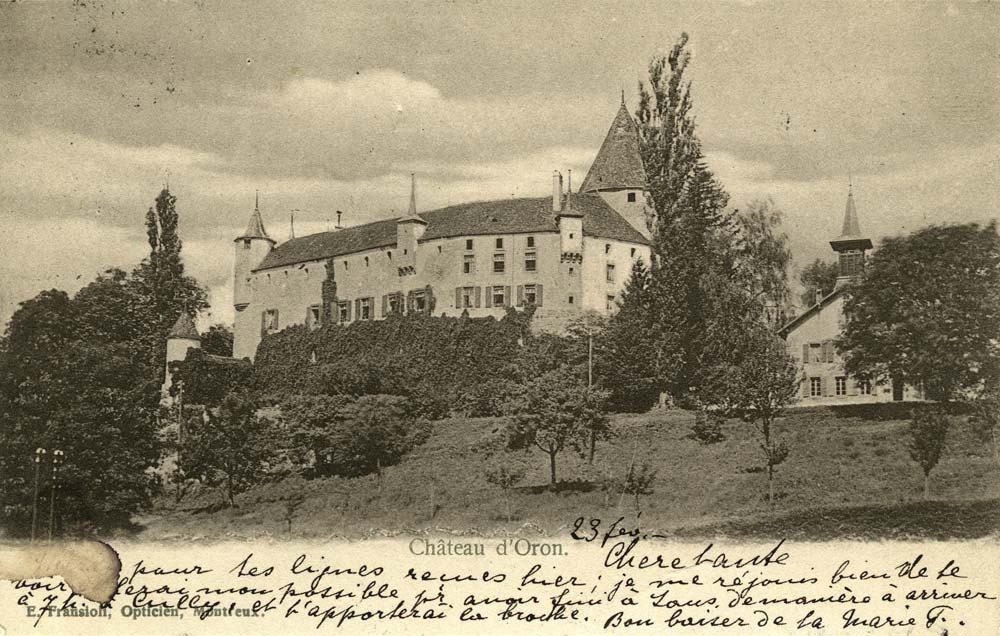 Château d'Oron.
23 fév.
Chere tante
pour tes lignes reçues hier; je me réjouis bien de te
voir ferai mon possible pr. avoir fini à Laus. de manière à arriver
à et t'apporterai la broche. Bon baiser de la Marie F.
E. Fransioli, Opticien, Montreux.